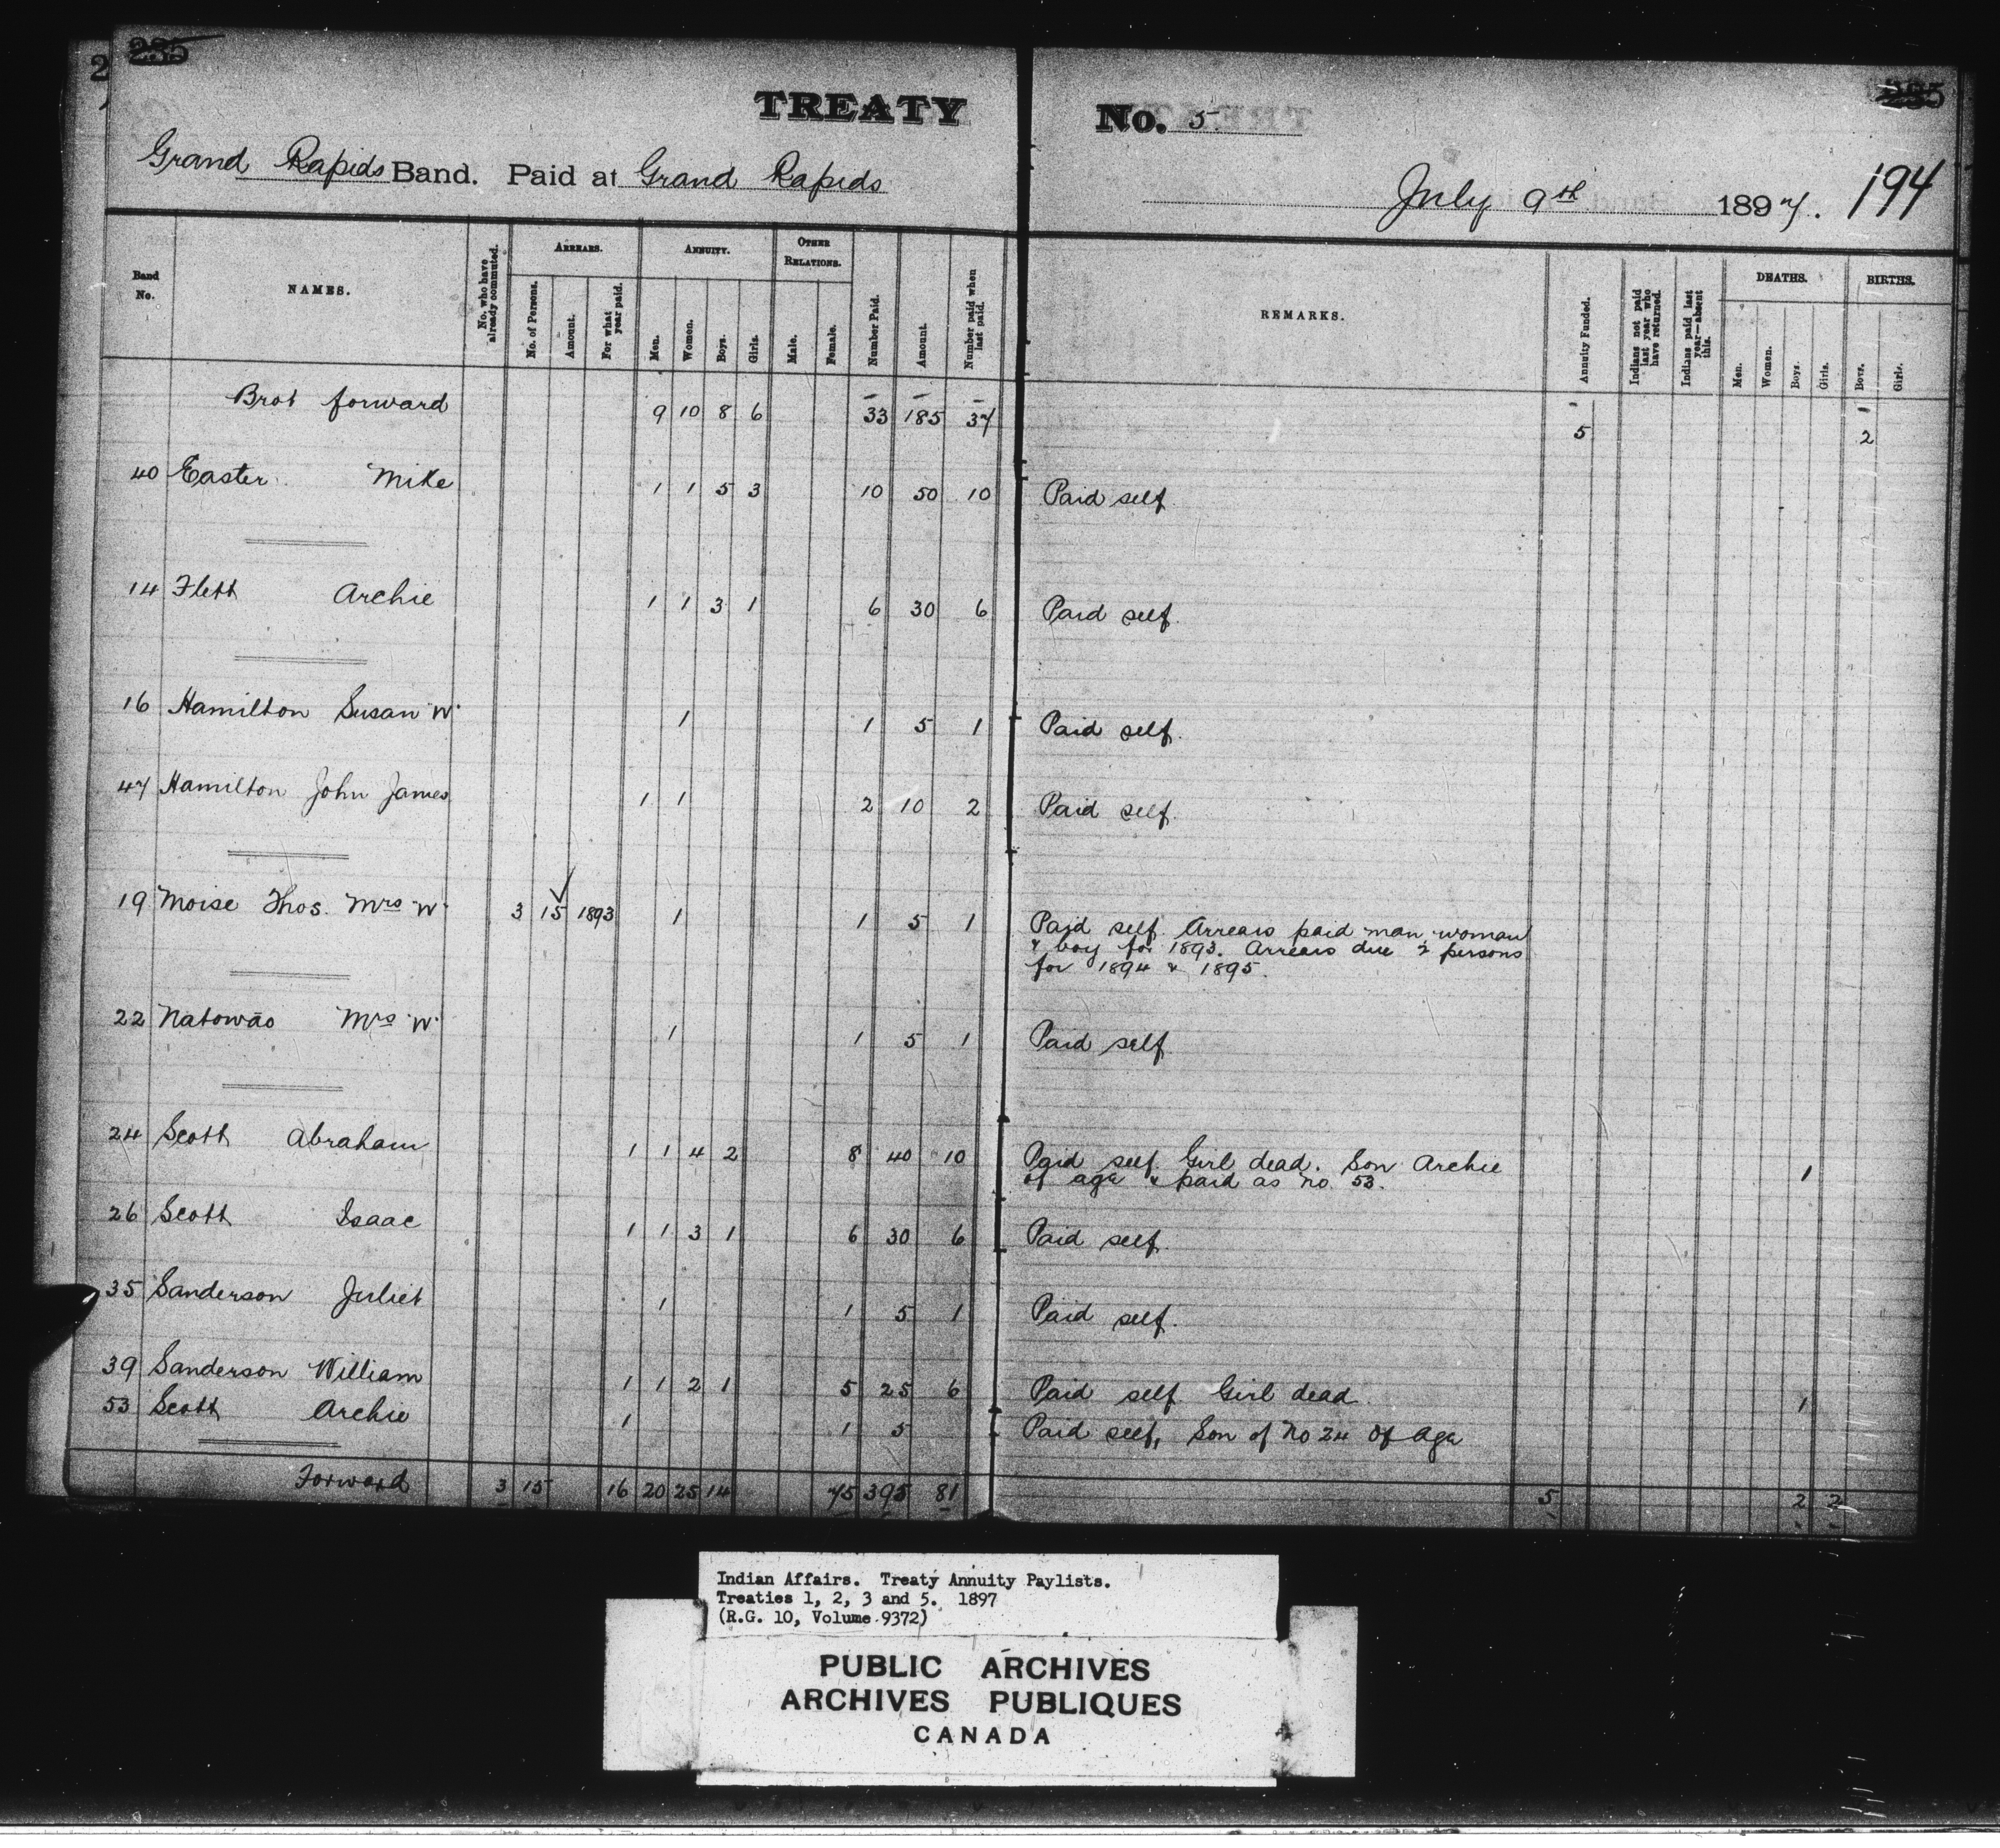 235
2
235
TREATY No. 5
Grand Rapids Band. Paid at Grand Rapids
July 9th 1897. 194
Band No. NAMES. No. who have already commuted. ARREARS. No. of Persons. Amount. For what year paid. ANNUITY. Men. Women. Boys. Girls. OTHER RELATIONS. Male. Female. Number Paid. Amount. Number paid when last paid. REMARKS. Annuity Funded. Indians not paid last year who have returned. Indians paid last year—absent this. DEATHS. Men. Women. Boys. Girls. BIRTHS. Boys. Girls.
Brot forward 9 10 8 6 33 185 37 5 2
40 Easter Mike 1 1 5 3 10 50 10 Paid self
14 Flett Archie 1 1 3 1 6 30 6 Paid self.
16 Hamilton Susan "W" 1 1 5 1 Paid self.
47 Hamilton John James 1 1 2 10 2 Paid self.
19 Moise Thos. Mrs "W" 3 15 1893 1 1 5 1 Paid self. Arrears paid man, woman
& boy for 1893. Arrears due 2 persons
for 1894 & 1895.
22 Natowāo Mrs "W" 1 1 5 1 Paid self
24 Scott Abraham 1 1 4 2 8 40 10 Paid self. Girl dead. Son Archie 1
of age & paid as no. 53.
26 Scott Isaac 1 1 3 1 6 30 6 Paid self.
35 Sanderson Juliet 1 1 5 1 Paid self.
39 Sanderson William 1 1 2 1 5 25 6 Paid self Girl dead. 1
53 Scott Archie 1 1 5 Paid self, Son of No 24 Of Age
Forward 3 15 16 20 25 14 75 395 81 5 2 2
Indian Affairs. Treaty Annuity Paylists.
Treaties 1, 2, 3 and 5. 1897
(R.G. 10, Volume 9372)
PUBLIC ARCHIVES
ARCHIVES PUBLIQUES
CANADA